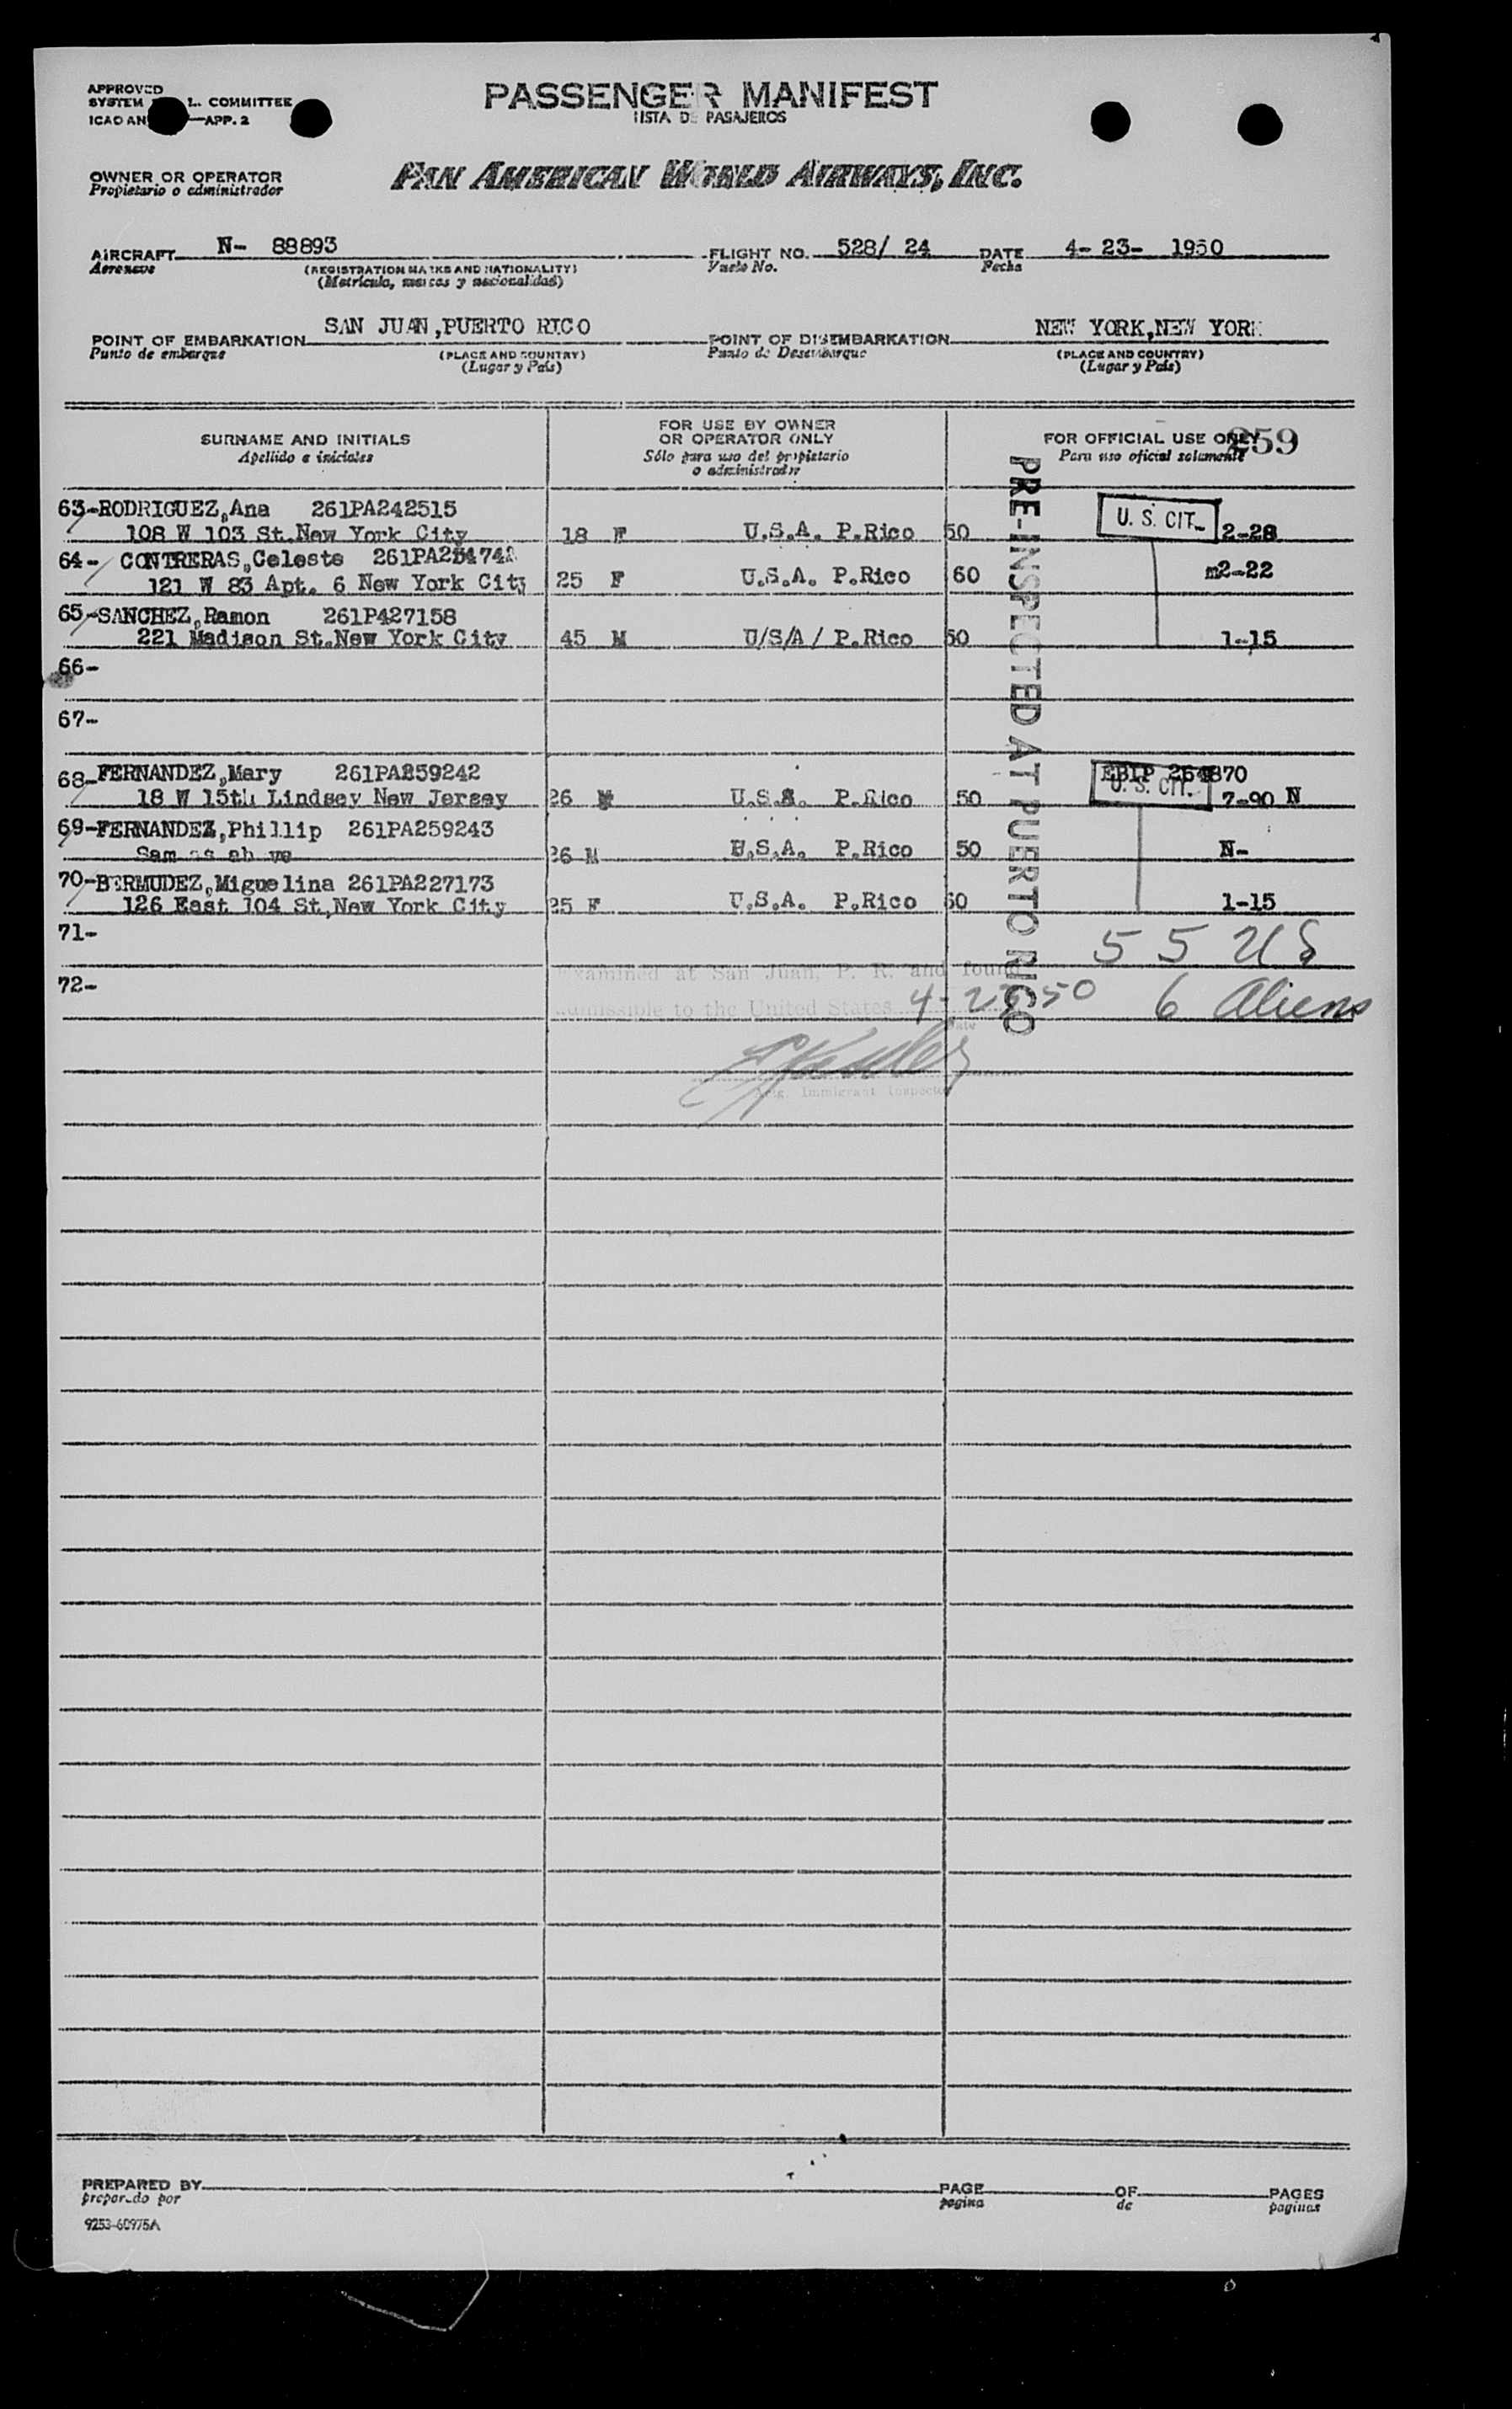 APPROVED
SYSTEM L. COMMITTEE
ICAO AN —APP. 2
PASSENGER MANIFEST
LISTA DE PASAJEROS
OWNER OR OPERATOR
Propietario o administrador
PAN AMERICAN WORLD AIRWAYS, INC.
AIRCRAFT N- 88893 FLIGHT NO. 528/ 24 DATE 4- 23- 1950
Aeronave (REGISTRATION MARKS AND NATIONALITY) Vuelo No. Fecha
(Matrícula, marcas y nacionalidad)
POINT OF EMBARKATION SAN JUAN,PUERTO RICO POINT OF DISEMBARKATION NEW YORK,NEW YORK
Punto de embarque (PLACE AND COUNTRY) Punto de Desembarque (PLACE AND COUNTRY)
(Lugar y País) (Lugar y País)
SURNAME AND INITIALS
Apellido e iniciales
FOR USE BY OWNER
OR OPERATOR ONLY
Sólo para uso del propietario
o administrador
FOR OFFICIAL USE ONLY 259
Para uso oficial solamente
PRE-INSPECTED AT PUERTO RICO
63-RODRIGUEZ,Ana 261PA242515 U. S. CIT.
108 W 103 St.New York City 18 F U.S.A. P.Rico 50 2-28
64- CONTRERAS,Celeste
121 W 83 Apt. 6 New York City 25 F U.S.A. P.Rico 60 m2-22
65-SANCHEZ,Ramon 261P427158
221 Madison St.New York City 45 M U/S/A/ P.Rico 50 1-15
66-
67-
68-FERNANDEZ,Mary 261PA259242 U. S. CIT.
18 W 15th Lindsey New Jersey 26 U.S.A. P.Rico 50 7-90 N
69-FERNANDEZ,Phillip 261PA259243
Sam as ab ve 26 M U.S.A. P.Rico 50 N-
70-BERMUDEZ,Miguelina 261PA227173
126 East 104 St,New York City 25 F U.S.A. P.Rico 50 1-15
71- 55 US
72- 6 Aliens
Examined at San Juan, P. R. and found
admissible to the United States 4-23-50
Date
Immigrant Inspector
PREPARED BY PAGE OF PAGES
preparado por pagina de paginas
9253-60975A